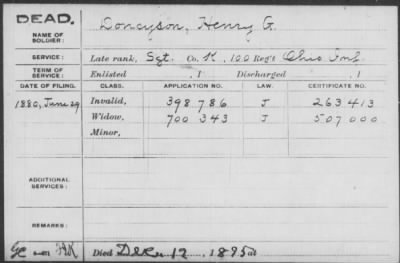 DEAD.
Doncyson, Henry G.
NAME OF SOLDIER:
SERVICE: Late rank, Sgt. Co. K, 100 Reg't Ohio Inf.
TERM OF SERVICE: Enlisted , 1 Discharged , 1
DATE OF FILING. CLASS. APPLICATION NO. LAW. CERTIFICATE NO.
1880, June 29 Invalid, 398 786 J 263413
Widow, 700 343 J 507000
Minor,
ADDITIONAL SERVICES:
REMARKS:
Died Dec. 12, 1895 at